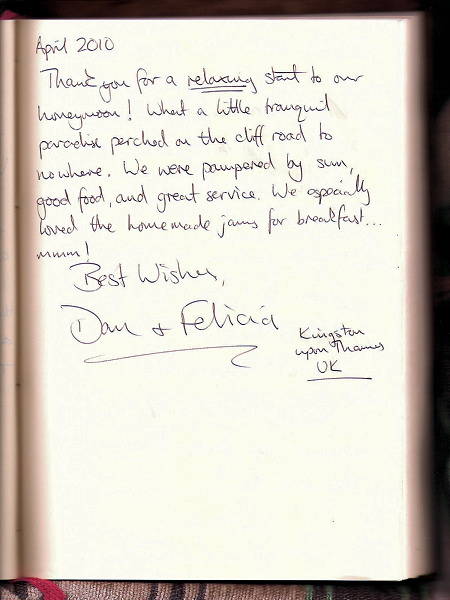 April 2010
Thank you for a relaxing start to our
honeymoon! What a little tranquil
paradise perched on the cliff road to
nowhere. We were pampered by sun,
good food, and great service. We especially
loved the homemade jams for breakfast...
mmm!
Best Wishes,
Dan + Felicia
Kingston
upon Thames
UK